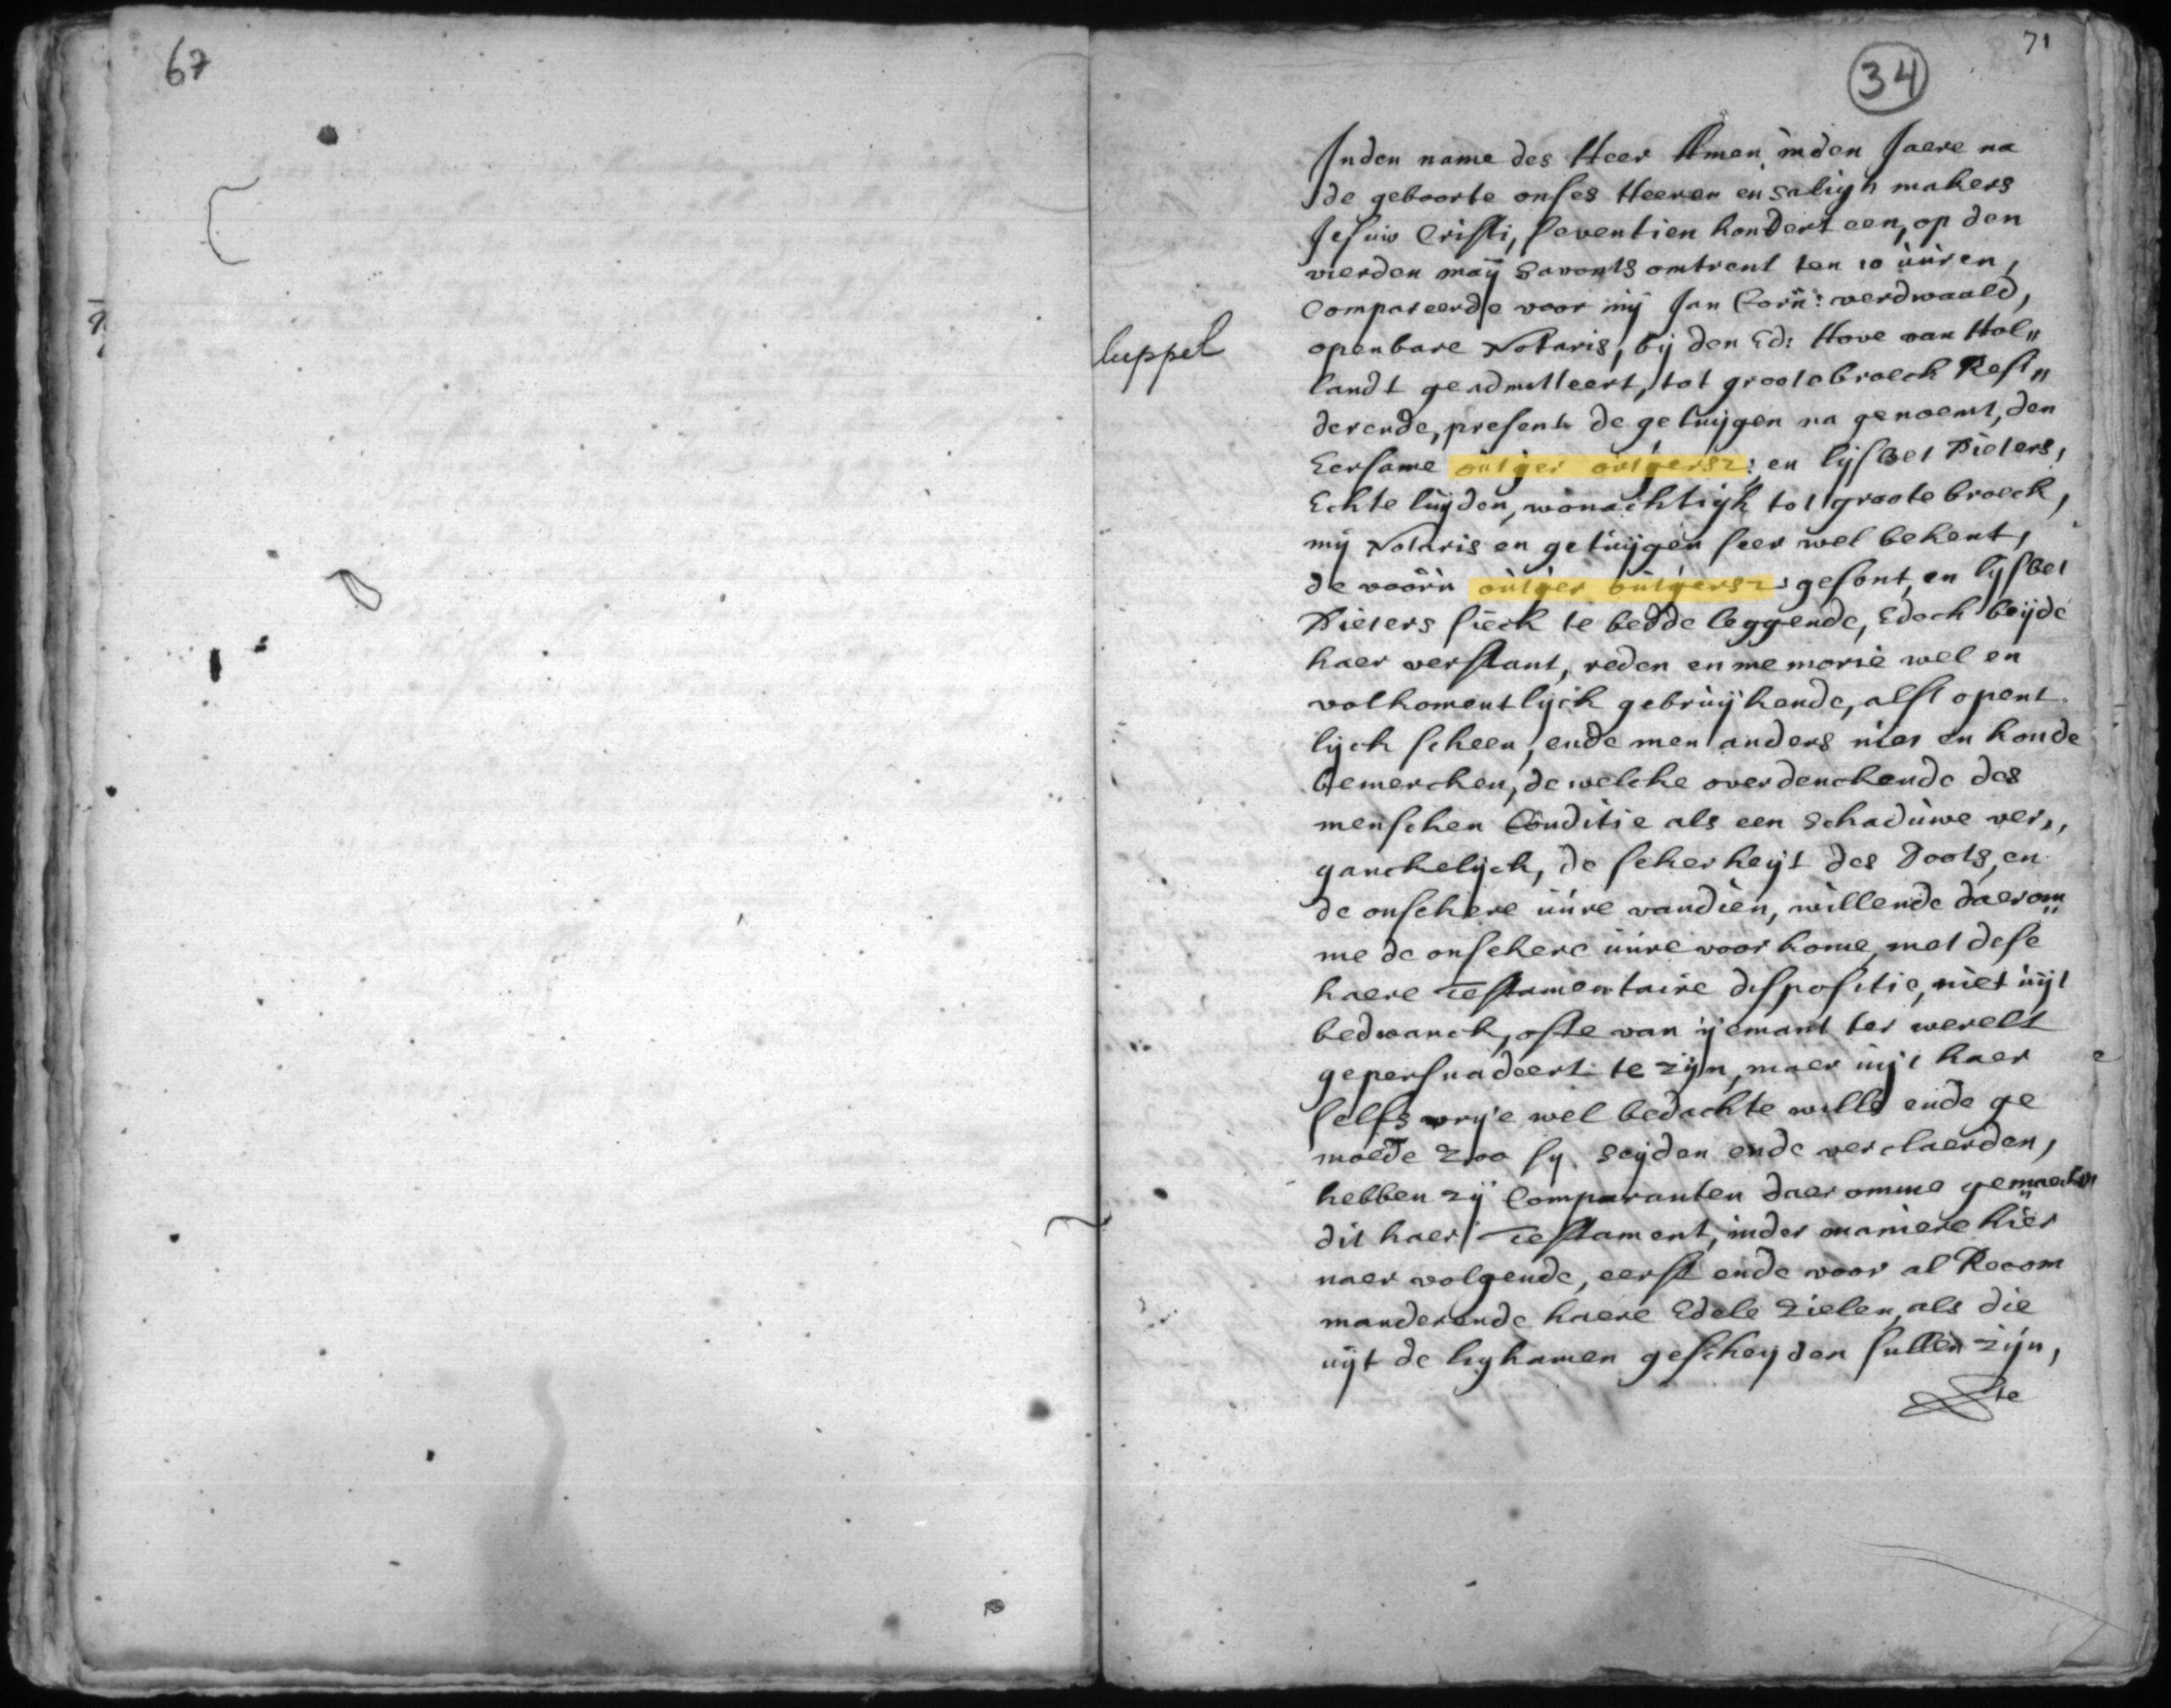 67
71
34
luppel
Inden name des Heer Amen inden Jaere na
de geboorte onses Heeren en saligh makers
Jesuw Cristi, seventien hondert een, op den
vierden maij savonts omtrent ten 10 uuren,
Compareerde voor mij Jan Corn: verdwaald,
openbare Notaris, bij den Ed: Hove van Hol„
landt geadmitteert, tot grootebroeck Resi„
derende, present de getuijgen na genoemt, den
Eersame outger outgersz: en lijsbet Pieters,
Echte luijden, wonachtigh tot groote broeck,
mij Notaris en getuijgen seer wel bekent,
de voorn outger outgersz: gesont, en lijsbet
Pieters sieck te bedde leggende, Edoch beijde
haer verstant, reden en memorie wel en
volkomentlijck gebruijkende, alst opent
lijck scheen, ende men anders niet en konde
bemercken, de welcke overdenckende des
menschen Conditie als een schaduwe ver„
ganckelijck, de sekerheijt des Doots, en
de onsekere uure vandien, willende daerom„
me de onsekere uure voor kome, met dese
haere Testamentaire dispositie, niet uijt
bedwanck, ofte van ijemant ter werelt
gepersuadeert te zijn, maer uijt haer
selfs vrije wel bedachte wille ende ge
moede zoo sij seijden ende verclaerden,
hebben zij Comparanten daeromme gemaeckt
dit haer Testament, inder maniere hier
naer volgende, eerst ende voor al Recom
manderende haere Edele zielen, als die
uijt de lighamen gescheijden sullen zijn,
te